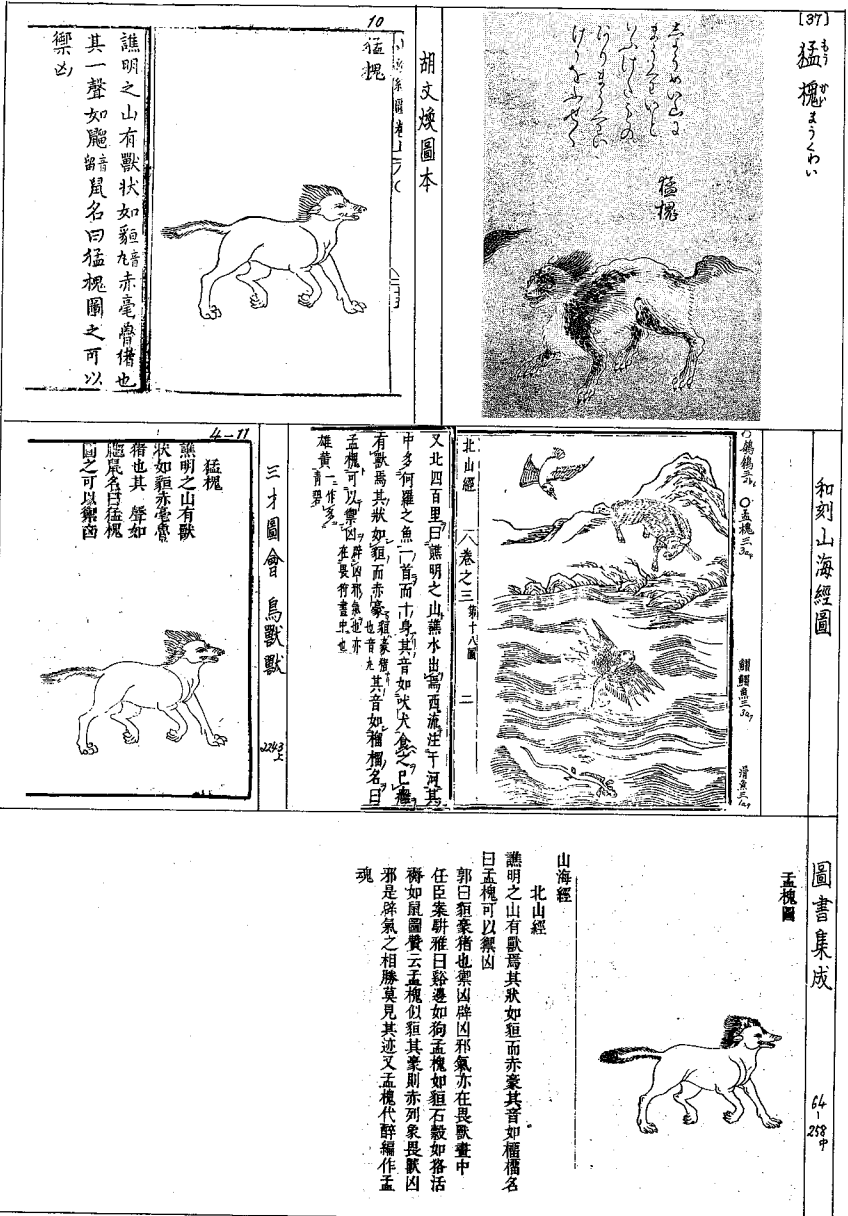 [37]
猛槐まうくわい
もう かい
猛槐
胡文煥圖本
10
猛槐
譙明之山有獸狀如貆音九赤毫魯猪也
其一聲如鼬音留鼠名曰猛槐圖之可以
禦凶
和刻山海經圖
○孟槐三
北山經
卷之三
第十八圖
二
又北四百里曰譙明之山譙水出焉西流注于河其
中多何羅之魚一首而十身其音如吠犬食之已癰
有獸焉其狀如貆而赤豪貆豪猪也音丸其音如榴榴名曰
孟槐可以禦凶辟凶邪氣也亦在畏狩畫中也
雄黃一作多青碧
三才圖會 鳥獸獸
2243上
4-11
猛槐
譙明之山有獸
狀如貆赤毫魯
猪也其聲如
鼬鼠名曰猛槐
圖之可以禦凶
圖書集成
64-258中
孟槐圖
山海經
北山經
譙明之山有獸焉其狀如貆而赤豪其音如榴榴名
曰孟槐可以禦凶
郭曰貆豪猪也禦凶辟凶邪氣亦在畏獸畫中
任臣案駢雅曰谿邊如狗孟槐如貆石㺉如狢活
褥如鼠圖贊云孟槐似貆其豪則赤列象畏獸凶
邪是辟氣之相勝莫見其迹又孟槐代醉編作孟
魂